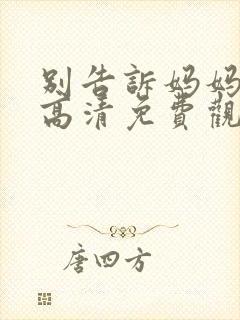 別告訴媽媽
高清免費觀
唐四方